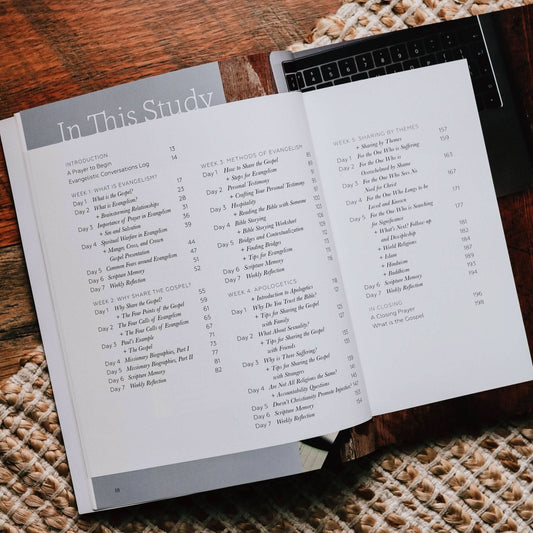 In This Study
INTRODUCTION 13
A Prayer to Begin 14
Evangelistic Conversations Log
WEEK 1: WHAT IS EVANGELISM? 17
Day 1 What is the Gospel? 23
Day 2 What is Evangelism? 27
+ Brainstorming Relationships 28
Day 3 Importance of Prayer in Evangelism 31
+ Sin and Salvation 36
Day 4 Spiritual Warfare in Evangelism 39
+ Manger, Cross, and Crown
Gospel Presentation 44
Day 5 Common Fears around Evangelism 47
Day 6 Scripture Memory 51
Day 7 Weekly Reflection 52
WEEK 2: WHY SHARE THE GOSPEL? 55
Day 1 Why Share the Gospel? 59
+ The Four Points of the Gospel
Day 2 The Four Calls of Evangelism
+ The Four Calls of Evangelism
Day 3 Paul's Example 67
+ The Gospel 71
Day 4 Missionary Biographies, Part I 77
Day 5 Missionary Biographies, Part II 81
Day 6 Scripture Memory 82
Day 7 Weekly Reflection
WEEK 3: METHODS OF EVANGELISM
Day 1 How to Share the Gospel
+ Steps for Evangelism
Day 2 Personal Testimony
+ Crafting Your Personal Testimony
Day 3 Hospitality
+ Reading the Bible with Someone
Day 4 Bible Storying
+ Bible Storying Worksheet
Day 5 Bridges and Contextualization
+ Finding Bridges
+ Tips for Evangelism
Day 6 Scripture Memory
Day 7 Weekly Reflection
WEEK 4: APOLOGETICS
+ Introduction to Apologetics
Day 1 Why Do You Trust the Bible?
+ Tips for Sharing the Gospel
with Family
Day 2 What About Sexuality?
+ Tips for Sharing the Gospel
with Friends
Day 3 Why is There Suffering?
+ Tips for Sharing the Gospel
with Strangers
Day 4 Are Not All Religions the Same?
+ Accountability Questions
Day 5 Doesn't Christianity Promote Injustice?
Day 6 Scripture Memory
Day 7 Weekly Reflection
WEEK 5: SHARING BY THEMES
+ Sharing by Themes 157
Day 1 For the One Who is Suffering 159
Day 2 For the One Who is
Overwhelmed by Shame 163
Day 3 For the One Who Sees No
Need for Christ 167
Day 4 For the One Who Longs to be
Loved and Known 171
Day 5 For the One Who is Searching
for Significance 177
+ What's Next? Follow-up
and Discipleship 181
+ World Religions 182
+ Islam 184
+ Hinduism 187
+ Buddhism 190
Day 6 Scripture Memory 193
Day 7 Weekly Reflection 194
IN CLOSING
A Closing Prayer 196
What is the Gospel 198